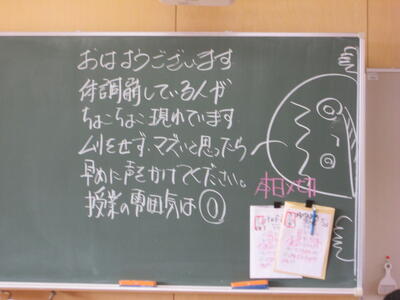 おはようございます
体調崩している人が
ちょこちょこ現れています
ムリをせず、マズいと思ったら
早めに声をかけてください。
授業の雰囲気は〇
本日メモ